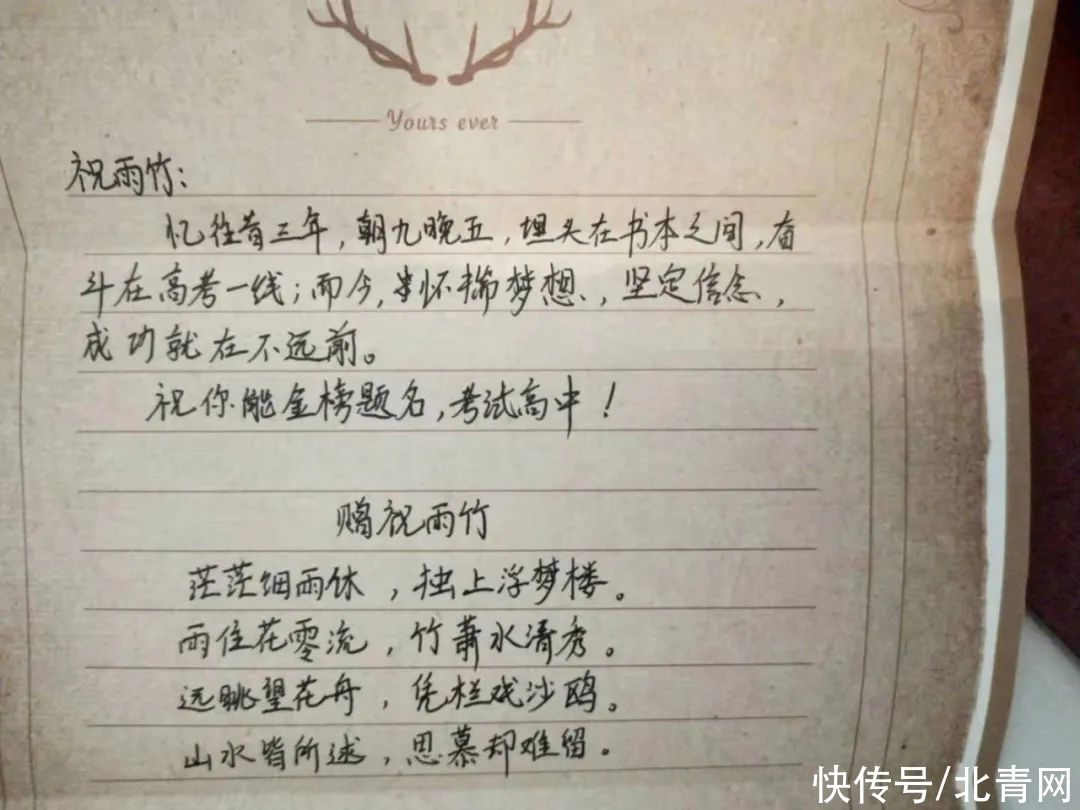 Yours ever
祝雨竹：
忆往昔三年，朝九晚五，埋头在书本之间，奋
斗在高考一线；而今，怀揣梦想，坚定信念，
成功就在不远前。
祝你能金榜题名，考试高中！
赠祝雨竹
茫茫细雨休，独上浮梦楼。
雨住花零流，竹萧水清秀。
远眺望花舟，凭栏戏沙鸥。
山水皆所逑，思慕却难留。
快传号/北青网